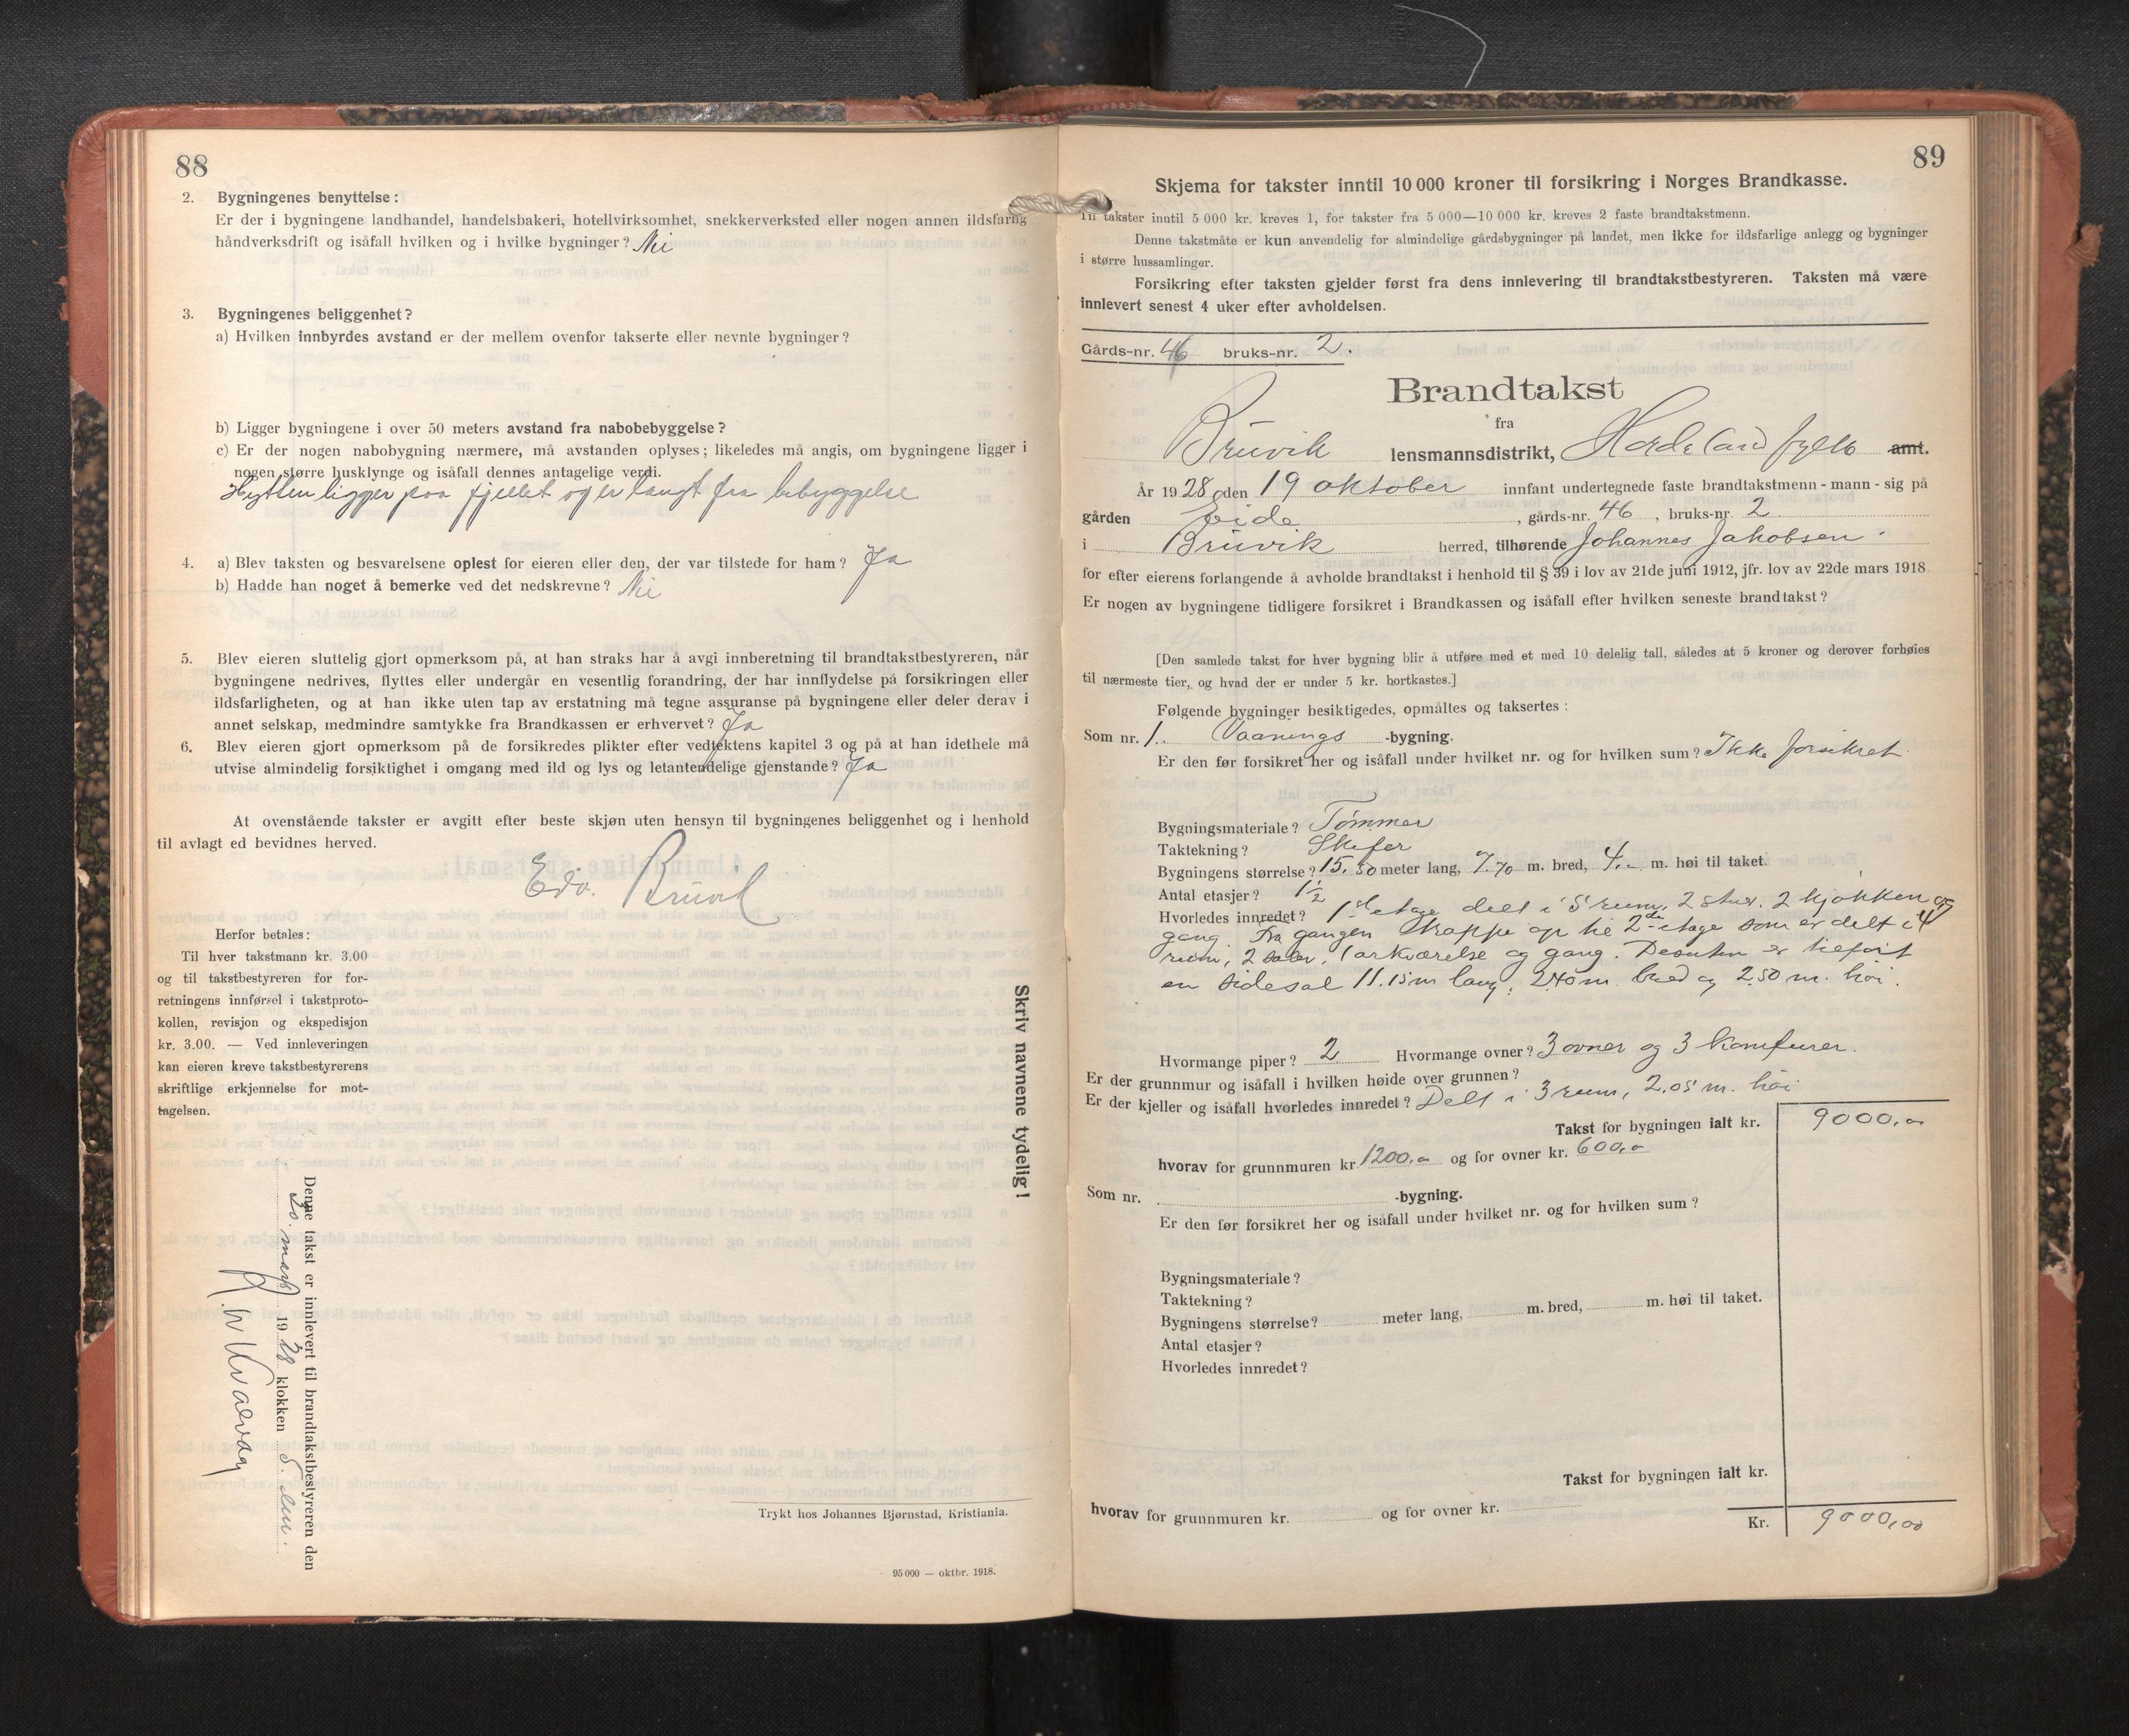 88
2. Bygningenes benyttelse:
Er der i bygningene landhandel, handelsbakeri, hotellvirksomhet, snekkerverksted eller nogen annen ildsfarlig
håndverksdrift og isåfall hvilken og i hvilke bygninger? Nei
3. Bygningenes beliggenhet?
a) Hvilken innbyrdes avstand er der mellem ovenfor takserte eller nevnte bygninger?
b) Ligger bygningene i over 50 meters avstand fra nabobebyggelse?
c) Er der nogen nabobygning nærmere, må avstanden oplyses; likeledes må angis, om bygningene ligger i
nogen større husklynge og isåfall dennes antagelige verdi.
Hytten ligger paa fjellet og er langt fra bebyggelse
4. a) Blev taksten og besvarelsene oplest for eieren eller den, der var tilstede for ham? Ja
b) Hadde han noget å bemerke ved det nedskrevne? Nei
5. Blev eieren sluttelig gjort opmerksom på, at han straks har å avgi innberetning til brandtakstbestyreren, når
bygningene nedrives, flyttes eller undergår en vesentlig forandring, der har innflydelse på forsikringen eller
ildsfarligheten, og at han ikke uten tap av erstatning må tegne assuranse på bygningene eller deler derav i
annet selskap, medmindre samtykke fra Brandkassen er erhvervet? Ja
6. Blev eieren gjort opmerksom på de forsikredes plikter efter vedtektens kapitel 3 og på at han idethele må
utvise almindelig forsiktighet i omgang med ild og lys og letantendelige gjenstande? Ja
At ovenstående takster er avgitt efter beste skjøn uten hensyn til bygningenes beliggenhet og i henhold
til avlagt ed bevidnes herved.
Edv. Bruvik
Herfor betales:
Til hver takstmann kr. 3.00
og til takstbestyreren for for-
retningens innførsel i takstproto-
kollen, revisjon og ekspedisjon
kr. 3.00. — Ved innleveringen
kan eieren kreve takstbestyrerens
skriftlige erkjennelse for mot-
tagelsen.
Skriv navnene tydelig!
Denne takst er innlevert til brandtakstbestyreren den
1928 klokken
Kvalvaag
Trykt hos Johannes Bjørnstad, Kristiania.
95 000 — oktbr. 1918.
89
Skjema for takster inntil 10 000 kroner til forsikring i Norges Brandkasse.
Til takster inntil 5 000 kr. kreves 1, for takster fra 5 000—10 000 kr. kreves 2 faste brandtakstmenn.
Denne takstmåte er kun anvendelig for almindelige gårdsbygninger på landet, men ikke for ildsfarlige anlegg og bygninger
i større hussamlinger.
Forsikring efter taksten gjelder først fra dens innlevering til brandtakstbestyreren. Taksten må være
innlevert senest 4 uker efter avholdelsen.
Gårds-nr. 46 bruks-nr. 2.
Brandtakst
fra
Bruvik lensmannsdistrikt, Hordaland fylke amt.
År 1928, den 19 oktober innfant undertegnede faste brandtakstmenn - mann - sig på
gården Eide, gårds-nr. 46, bruks-nr. 2
i Bruvik herred, tilhørende Johannes Jakobsen.
for efter eierens forlangende å avholde brandtakst i henhold til § 39 i lov av 21de juni 1912, jfr. lov av 22de mars 1918
Er nogen av bygningene tidligere forsikret i Brandkassen og isåfall efter hvilken seneste brandtakst?
[Den samlede takst for hver bygning blir å utføre med et med 10 delelig tall, således at 5 kroner og derover forhøies
til nærmeste tier, og hvad der er under 5 kr. bortkastes.]
Følgende bygninger besiktigedes, opmåltes og taksertes:
Som nr. 1. Vaanings-bygning.
Er den før forsikret her og isåfall under hvilket nr. og for hvilken sum? Ikke forsikret
Bygningsmateriale? Tømmer
Taktekning? Skifer
Bygningens størrelse? 15.50 meter lang, 7.70 m. bred, 4.- m. høi til taket.
Antal etasjer? 1½
Hvorledes innredet? 1ste etage delt i 5 rum, 2 stuer. 2 kjøkken og
gang. Fra gangen trappe op til 2de etage som er delt i 4
rum, 2 saler, 1 arkværelse og gang. Desuten er tilført
en sidesal 11.15 m lang, 2.40 m. bred og 2.50 m. høi.
Hvormange piper? 2 Hvormange ovner? 3 ovner og 3 komfurer.
Er der grunnmur og isåfall i hvilken høide over grunnen?
Er der kjeller og isåfall hvorledes innredet? Delt i 3 rum, 2.05 m. høi
Takst for bygningen ialt kr. 9000,00
hvorav for grunnmuren kr. 1200,00 og for ovner kr. 600,00
Som nr. -bygning.
Er den før forsikret her og isåfall under hvilket nr. og for hvilken sum?
Bygningsmateriale?
Taktekning?
Bygningens størrelse? meter lang, m. bred, m. høi til taket.
Antal etasjer?
Hvorledes innredet?
Takst for bygningen ialt kr.
hvorav for grunnmuren kr. og for ovner kr.
Kr. 9000,00